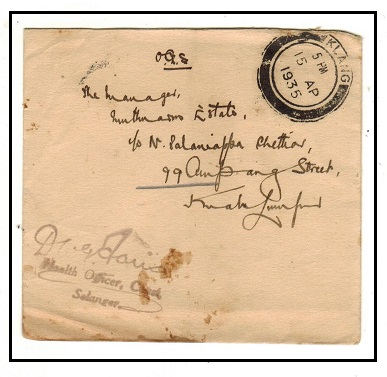 O.G.S
KLANG
5 PM
15 AP
1935
The Manager,
Estate,
c/o N. Palaniappa Chettiar,
99 Ampang Street,
Kuala Lumpur
Health Officer,
Selangor.